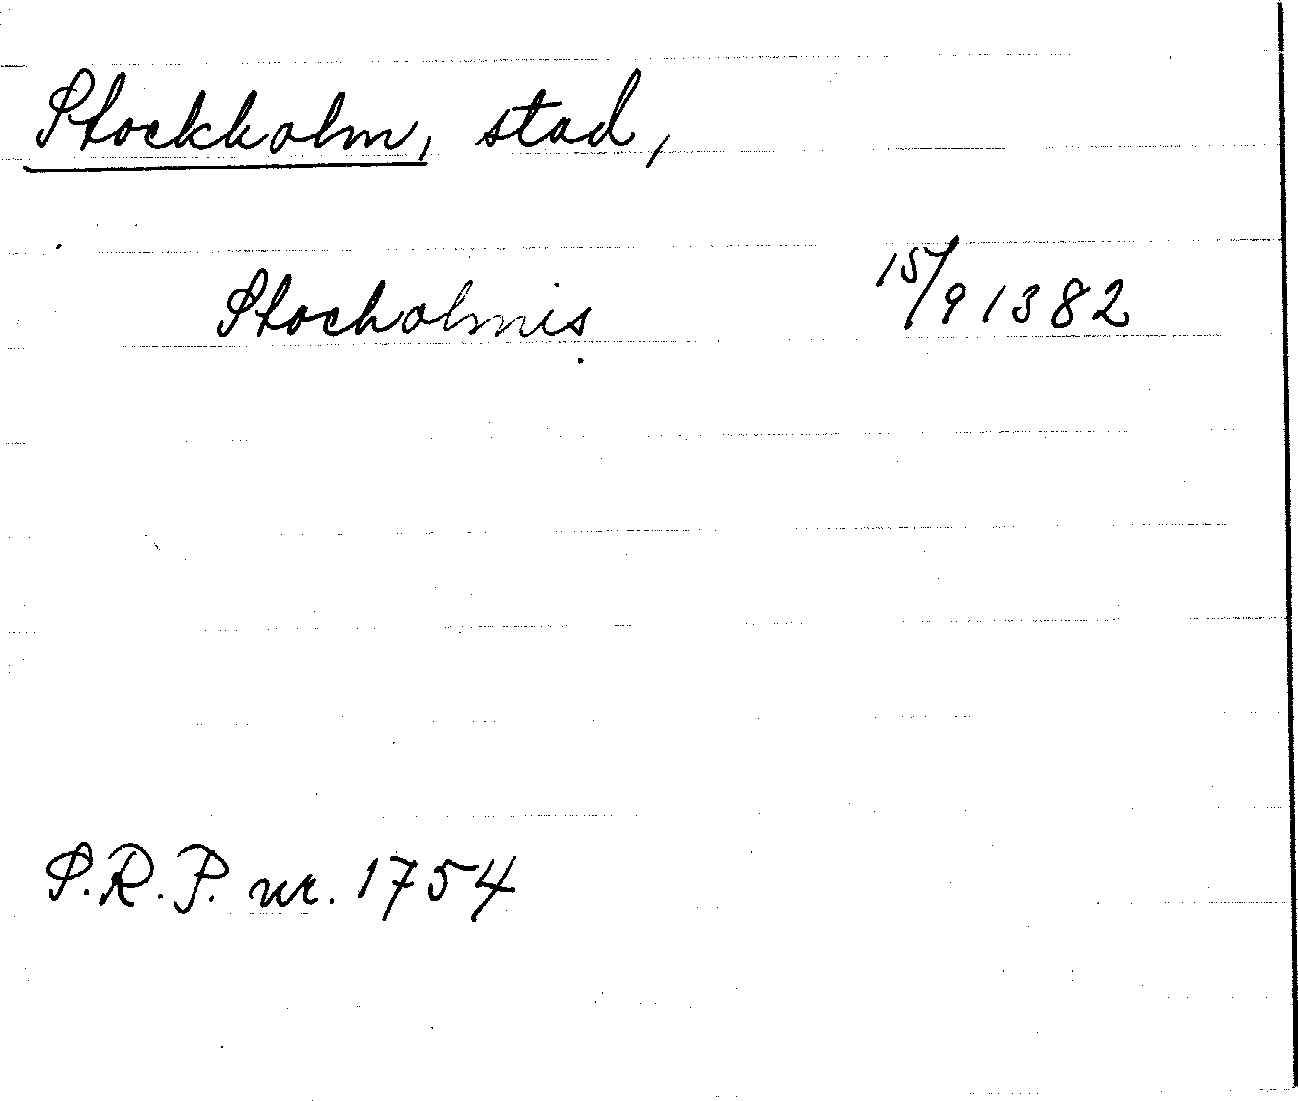 Stockholm, stad,
Stocholmis 15/9 1382
S.R.P. nr. 1754